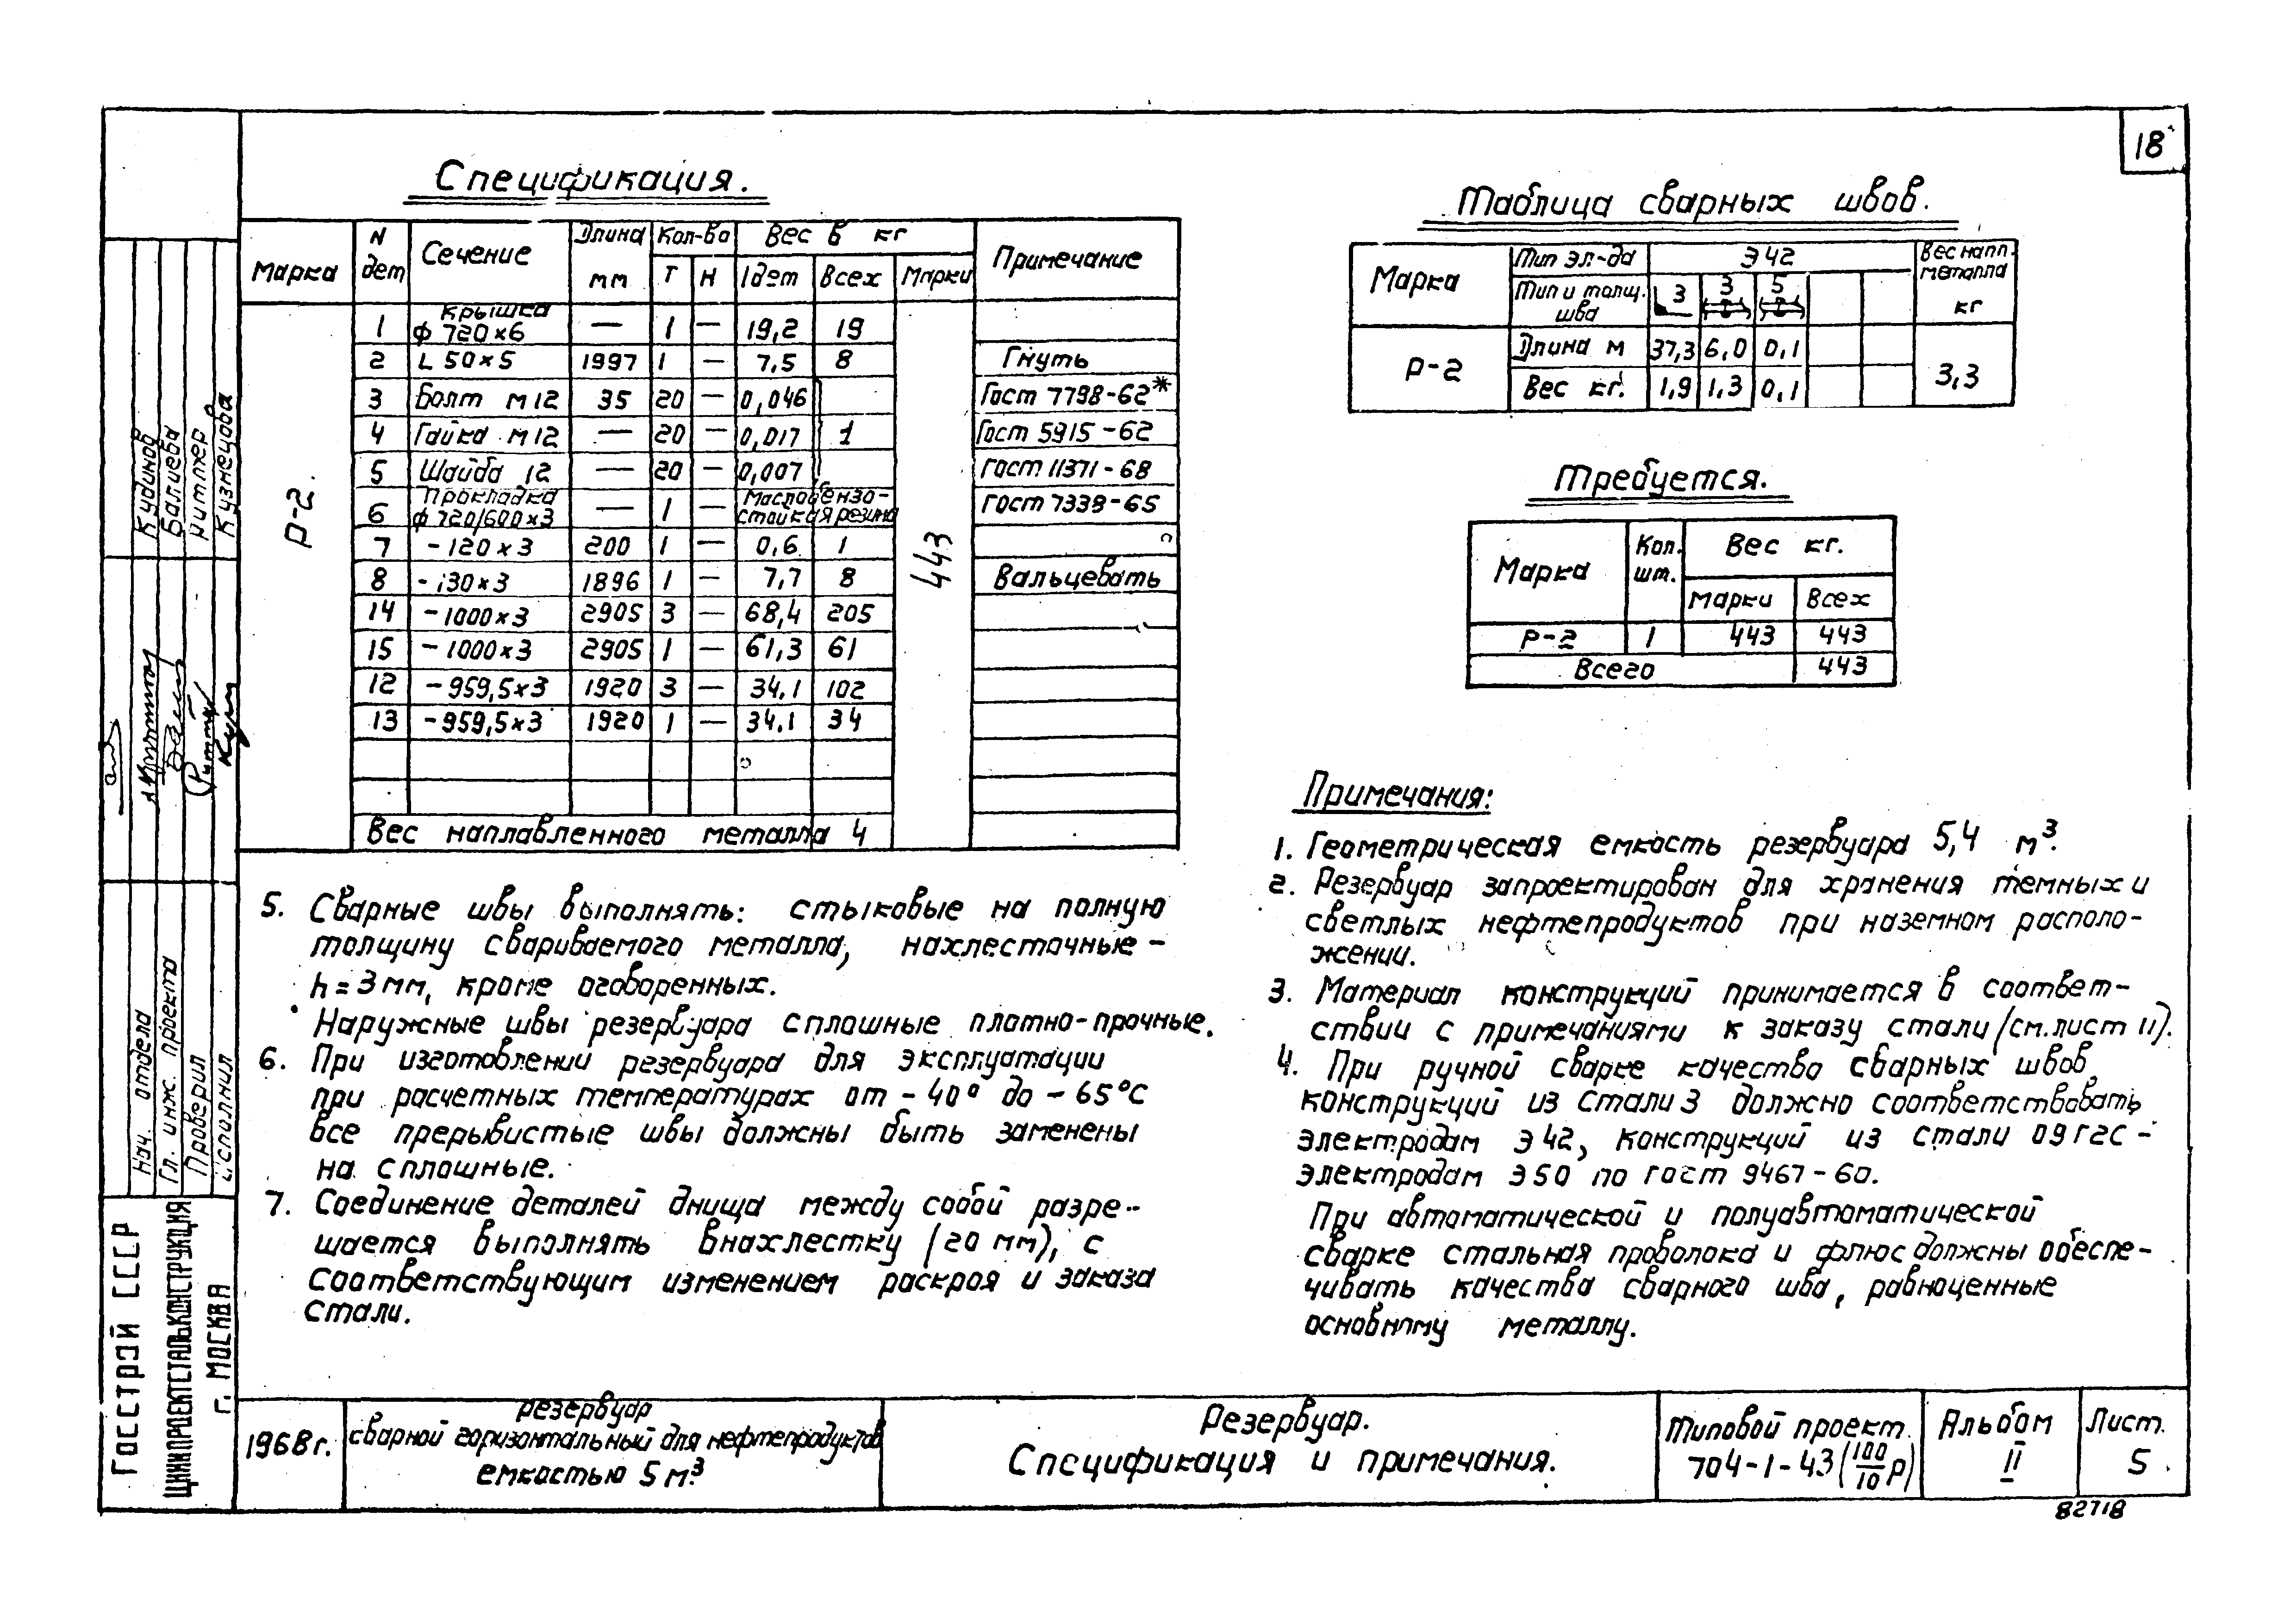 18
Спецификация.
Марка N дет Сечение Длина мм Кол-во Вес в кг Примечание
Т Н 1дет Всех Марки
Р-2. 443
1 Крышка ф 720×6 — 1 — 19,2 19
2 L 50×5 1997 1 — 7,5 8 Гнуть
3 Болт М12 35 20 — 0,046 Гост 7798-62*
4 Гайка М12 — 20 — 0,017 1 Гост 5915-62
5 Шайба 12 — 20 — 0,007 Гост 11371-68
6 Прокладка ф 720/600×3 — 1 — Маслобензостойкая резина Гост 7338-65
7 -120×3 200 1 — 0,6 1
8 -130×3 1896 1 — 7,7 8 Вальцевать
14 -1000×3 2905 3 — 68,4 205
15 -1000×3 2905 1 — 61,3 61
12 -959,5×3 1920 3 — 34,1 102
13 -959,5×3 1920 1 — 34,1 34
Вес наплавленного металла 4
Таблица сварных швов.
Марка Тип эл-да Э42 Вес напл. металла кг
Тип и толщ. шва 3 3 5
Р-2 Длина м 37,3 6,0 0,1 3,3
Вес кг. 1,9 1,3 0,1
Требуется.
Марка Кол. шт. Вес кг.
Марки Всех
Р-2 1 443 443
Всего 443
Примечания:
1. Геометрическая емкость резервуара 5,4 м³.
2. Резервуар запроектирован для хранения темных и
светлых нефтепродуктов при наземном располо-
жении.
3. Материал конструкций принимается в соответ-
ствии с примечаниями к заказу стали (см. лист 11).
4. При ручной сварке качество сварных швов
конструкций из стали 3 должно соответствовать
электродам Э42, конструкций из стали 09Г2С -
электродам Э50 по гост 9467-60.
При автоматической и полуавтоматической
сварке стальная проволока и флюс должны обеспе-
чивать качества сварного шва, равноценные
основному металлу.
5. Сварные швы выполнять: стыковые на полную
толщину свариваемого металла, нахлесточные -
h=3мм, кроме оговоренных.
Наружные швы резервуара сплошные плотно-прочные.
6. При изготовлении резервуара для эксплуатации
при расчетных температурах от -40° до -65°С
все прерывистые швы должны быть заменены
на сплошные.
7. Соединение деталей днища между собой разре-
шается выполнять внахлестку (20 мм), с
соответствующим изменением раскроя и заказа
стали.
Кудинов
Балиева
Риттер
Кузнецова
Нач. отдела
Гл. инж. проекта
Проверил
Исполнил
ГОССТРОЙ СССР
ЦНИИПРОЕКТСТАЛЬКОНСТРУКЦИЯ
г. МОСКВА
1968г.
Резервуар
сварной горизонтальный для нефтепродуктов
емкостью 5м³
Резервуар.
Спецификация и примечания.
Типовой проект
704-1-43(100/10 Р)
Альбом
II
Лист.
5
82718